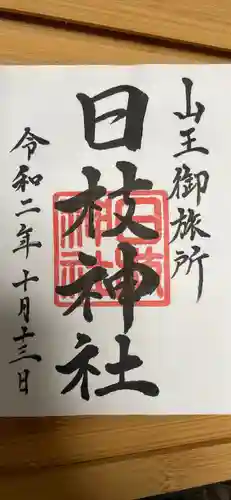 山王御旅所
日枝神社
令和二年十月十三日
日枝
神社